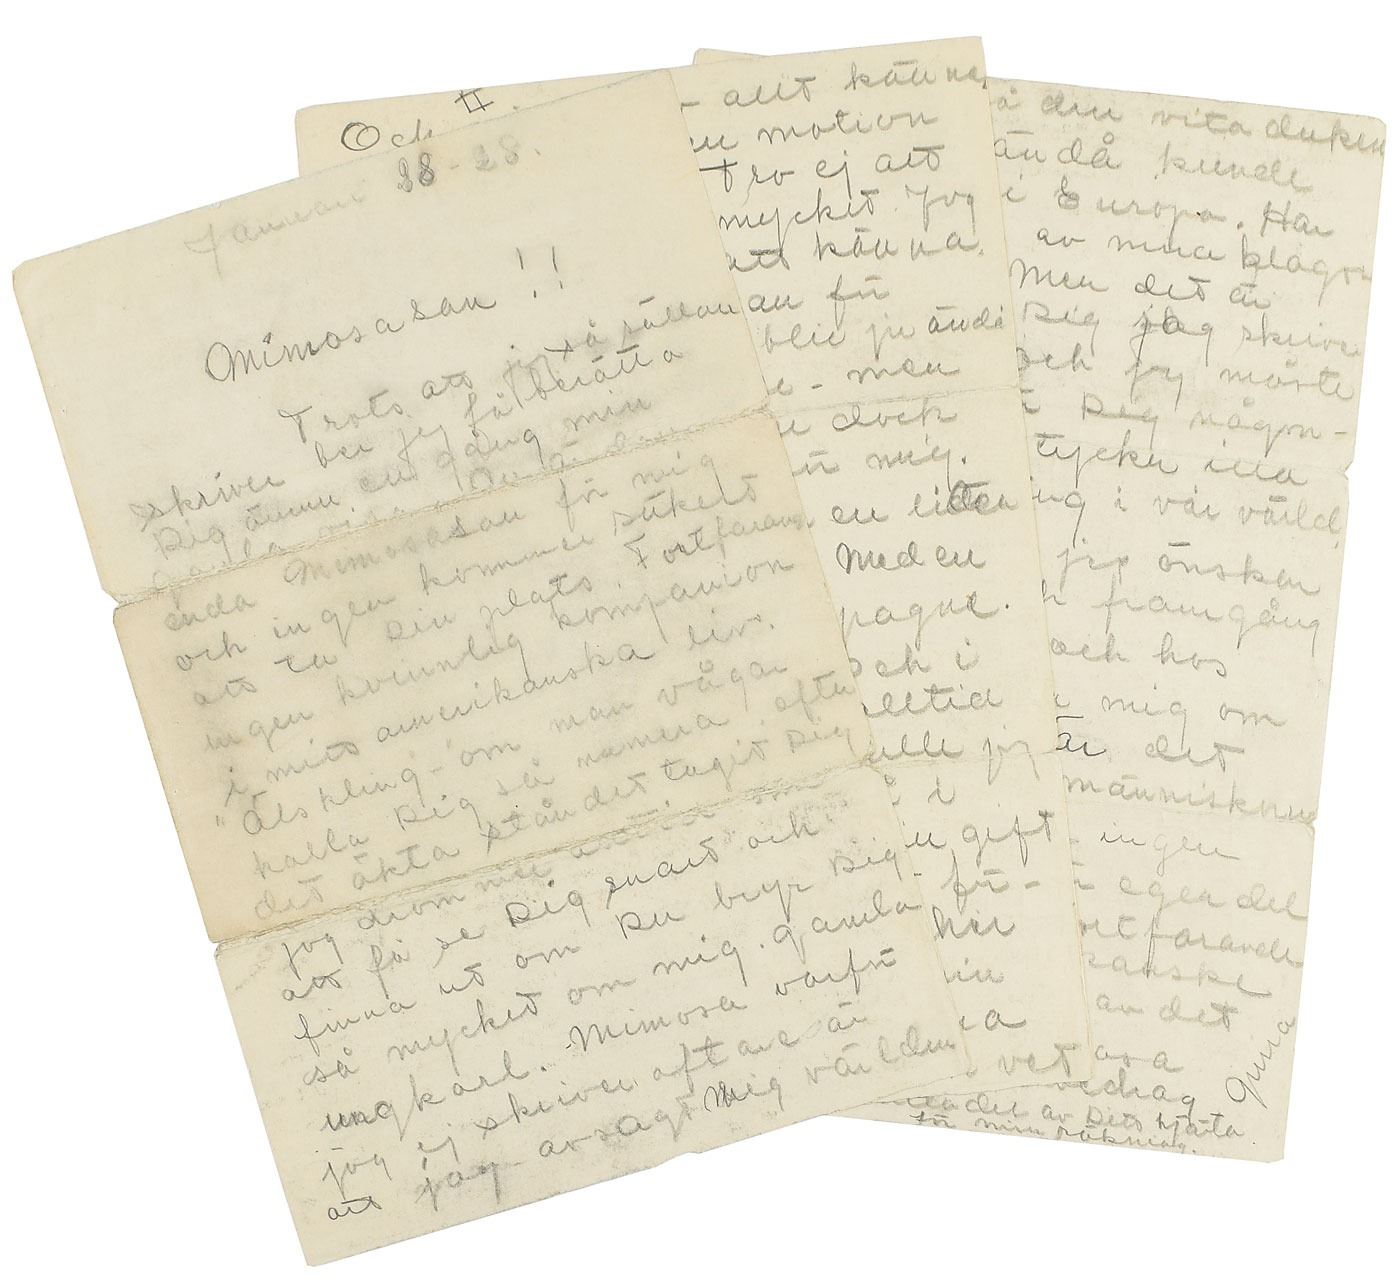 Januari 28-28.
Mimosasan!!
Trots att jag så sällan
skriver ber jag få berätta
Dig ännu en gång min
enda Mimosasan för mig
och ingen kommer säkert
att ta Din plats. Fortfarande
ingen kvinnlig kompanion
i mitt amerikanska liv.
"Älskling"-om man vågar
kalla Dig så numera efter
det äkta ståndet tagit Dig
jag drömmer alltid om
att få se Dig snart och
finna ut om Du bryr Dig
så mycket om mig. gamla
ungkarl. Mimosa varför
jag ej skriver oftare är
att jag avsagt mig världen
Och II.
- allt känna
en motion
tro ej att
mycket. Jag
att känna.
an för
blir ju ändå
e - men
dock
mig.
en liten
Med en
pagne.
och i
alltid
ulle jag
i
gift
- för-
her
in
na
vet
å den vita duken
ändå kunde
i Europa. Har
av mina plågor
Men det är
Dig jag skriver
och jag måste
Dig någon-
tycka illa
ng i vår värld.
jag önskar
framgång
och hos
mig om
är det
människorna
- ingen
egen del
ortfarande
kanske
av det
av Dets hjärta
för min räkning.